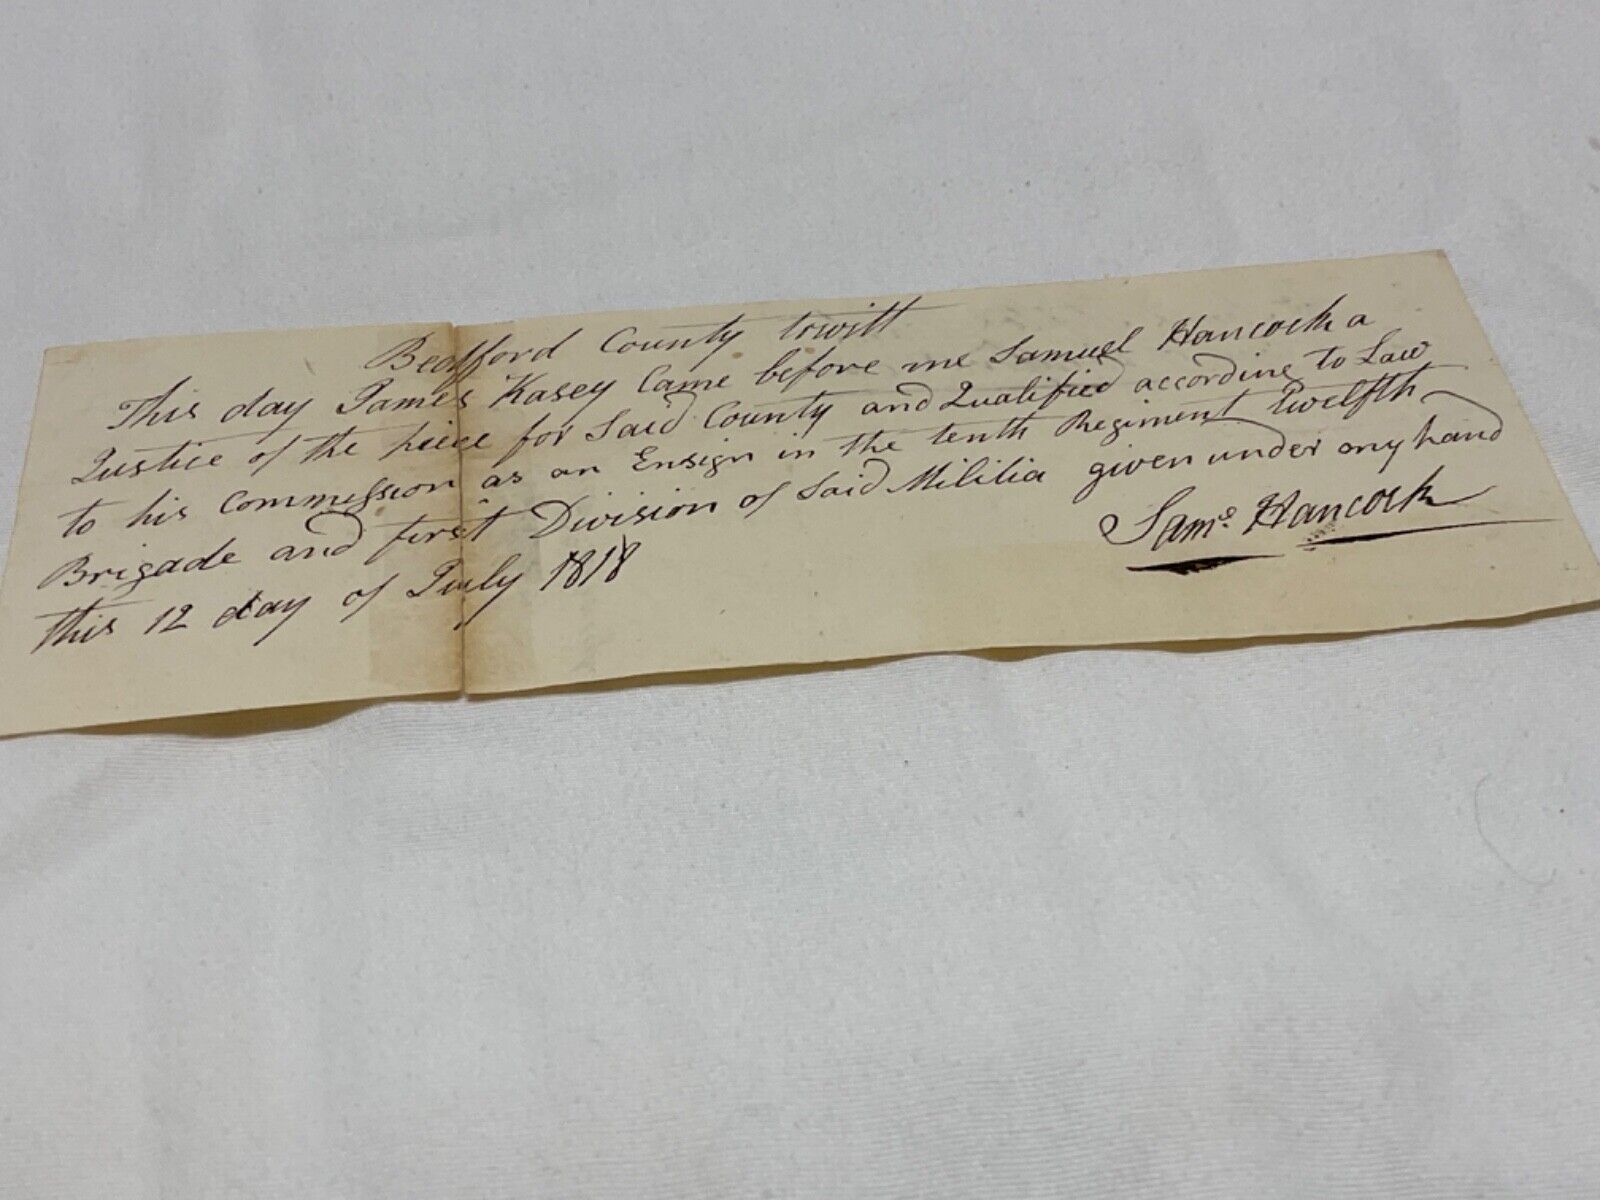 Bedfford County towitt
This day James Kasey Came before me Samuel Hancock a
Justice of the piece for Said County and Qualified according to Law
to his Commission as an Ensign in the tenth Regiment Twelfth
Brigade and first Division of Said Militia given under my hand
this 12 day of July 1818
Saml. Hancock